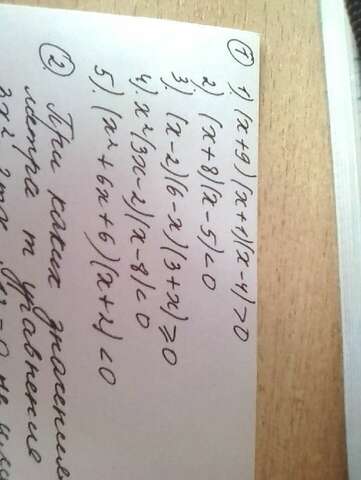 ① 1) (x+9)(x+1)(x-4)>0
2) (x+8)(x-5)<0
3). (x-2)(6-x)(3+x)≥0
4). x²(3x-2)(x-8)<0
5). (x²+6x+6)(x+2)<0
②. При каких значения
метра m уравнение